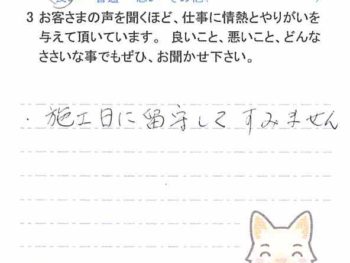 3 お客さまの声を聞くほど、仕事に情熱とやりがいを
与えて頂いています。良いこと、悪いこと、どんな
ささいな事でもぜひ、お聞かせ下さい。
・施工日に留守してすみません